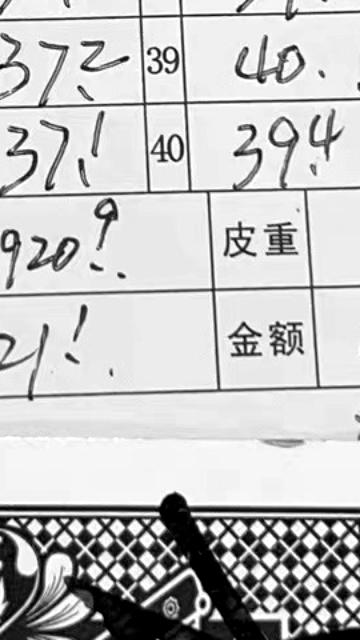 37.2 39 40.
37.1 40 39.4
皮重
金额